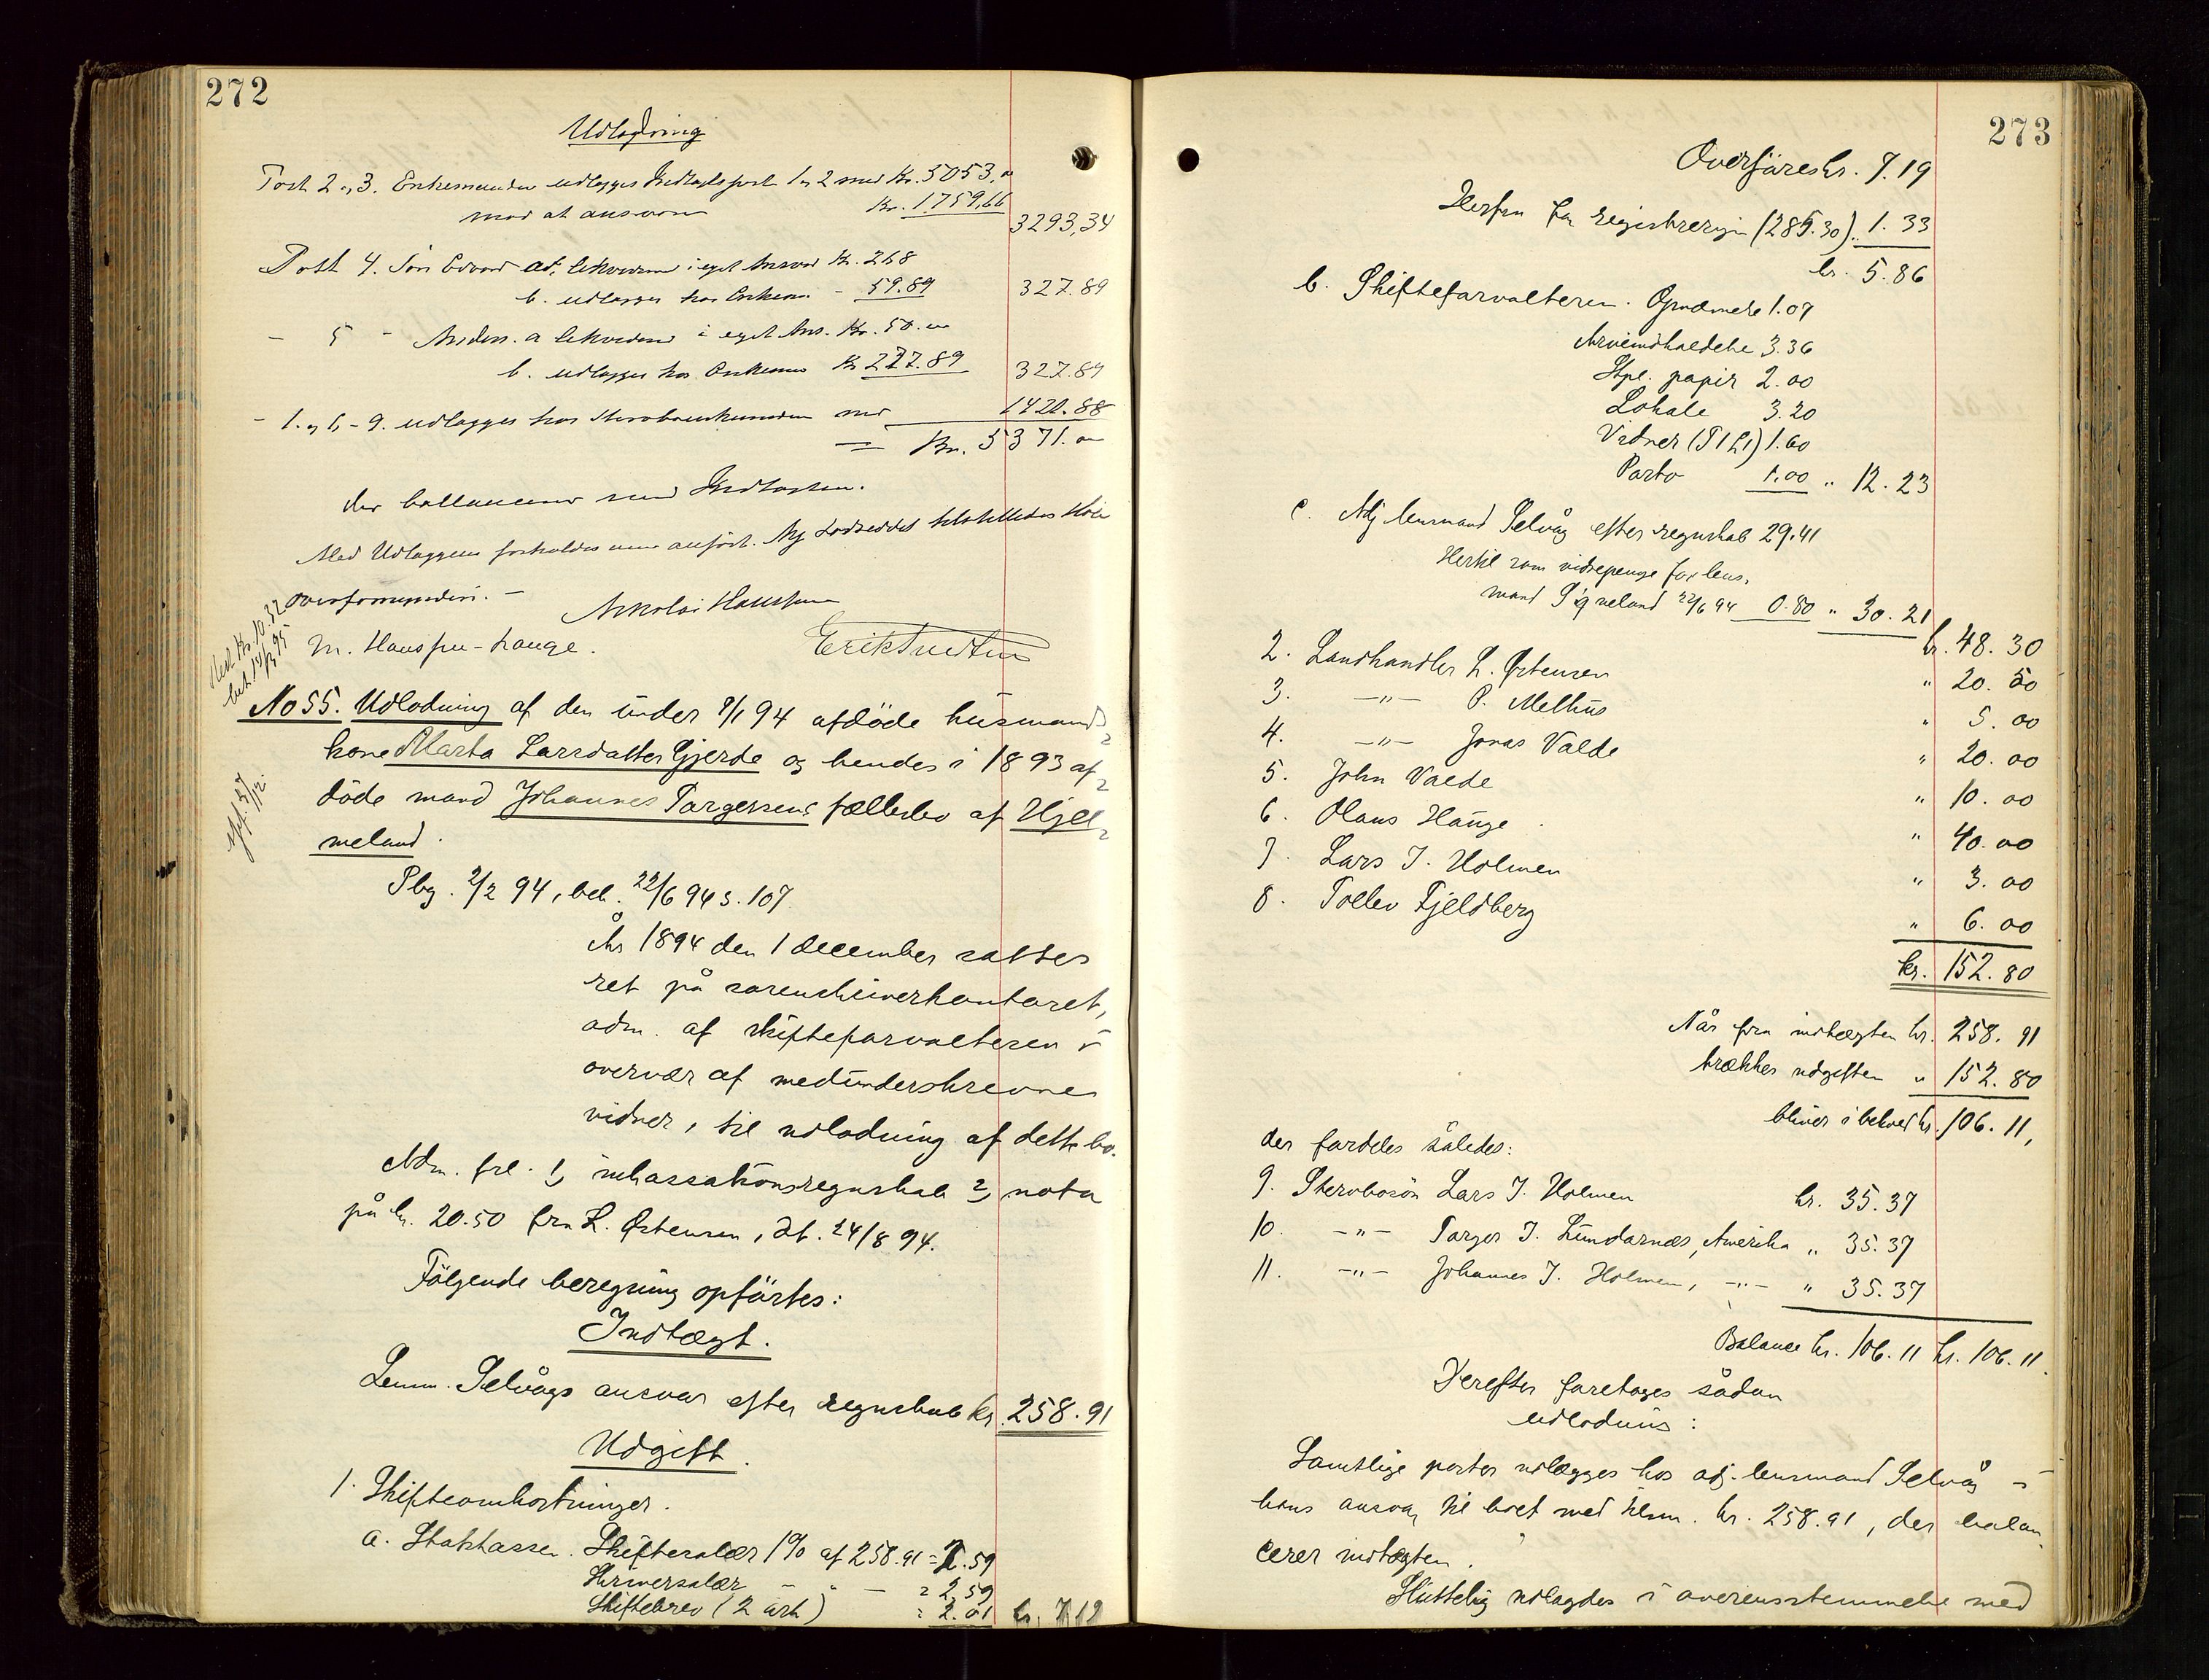 272
Udlodning
Post 2 og 3. Enkemanden udlægges Indtægtspost 1 og 2 med Kr. 5053,"
mod at ansvare Kr. 1759,66
3293,34
Post 4. Søn Edvard a, likvideres i eget Ansvar Kr. 268
b. udlægges hos Enkem. - 59.89 327.89
- 5 - a likvideres i eget Ans. Kr. 50.
b. udlægges hos Enkem. Kr 277.89 327.89
- 1. og 6-9. udlægges hos Stervboenkemanden med 1421.88
= Kr. 5371.
der ballancerer med Indtægten.
Med Udlæggene forholdes som anført.
overformynderi. -
Nikolai Hansen
M. Hansen-Hauge.
Erik Knudsen
No 55. Udlodning af den under 8/1 94 afdöde husmands
kone Marta Larsdatter Gjerde og hendes i 1893 af
döde mand Johannes Torgersens fællesbo af Hjel
meland.
Pbg. 2/2 94, beh. 22/6 94 s. 107.
År 1894 den 1 december sattes
ret på sorenskriverkontoret,
adm. af skifteforvalteren i
overvær af medunderskrevne
vidner, til udlodning af dette bo.
Adm. frl. 1, inkassationsregnskab 2, nota
på kr. 20.50 fra L. Østensen, dt. 24/8 94.
Fölgende beregning opförtes:
Indtægt.
Lensm. Selvågs ansvar efter regnskab kr. 258.91
Udgift.
1. Skifteomkostninger.
a. Statskassen. Skiftesalær 1% af 258.91 = 2.59
Skriversalær - " - = 2,59
Skiftebrev (2 ark) = 2.01 kr. 7.19
273
Overföres kr. 7.19
Herfra for registreringen (285.30) .. 1.33
kr. 5.86
b. Skifteforvalteren. Opnævnelse 1.07
Arveindkaldelse 3.36
Stpl. papir 2.00
Lokale 3.20
Vidner (T 1 L 1) 1.60
Porto 1.00 " 12.23
c. Adj lensmand Selvåg efter regnskab 29.41
Hertil som vidnepenge for lens,
mand Sigveland 22/6 94 0.80 " 30.21
kr. 48.30
2. Landhandler L. Østensen " 20.50
3. -"- P. Melhus " 5.00
4. -"- Jonas Valde " 20.00
5. John Valde " 10.00
6. Olaus Hauge " 40.00
7. Lars J. Holmen " 3.00
8. Tollev Fjeldberg " 6.00
kr. 152.80
Når fra indtægten kr. 258.91
trækkes udgiften " 152.80
bliver i behold kr. 106.11,
der fordeles således:
9. Stervbosön Lars J. Holmen kr. 35.37
10. -"- Torger J. Lundarnæs, Amerika " 35.37
11. -"- Johannes J. Holmen, -"- " 35.37
Balance kr. 106.11 kr. 106.11.
Derefter foretoges sådan
udlodning:
Samtlige poster udlægges hos adj. lensmand Selvåg i
hans ansvar til boet med tilsm. kr. 258.91, der balan
cerer indtægten.
Skiftelig udlagdes i overensstemmelse med